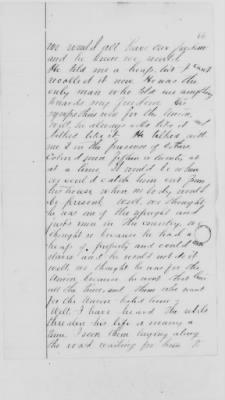 we would all have our freedom
and he knew we would
He told me a heap, but I can't
recollect it now. He was the
only man who told me anything
towards my freedom. His
sympathies was for the Union,
will he always who like it and
talked like it. He talked with
me & in the presence of others
Colored men fifteen or twenty at
a time. It would be when
he would catch him out from
his house when nobody would
be present. Well, we thought
he was one of the upright and
just men in the country, we
thought so because he had a
heap of property and could
slaves and he would not do it
well, we thought he was for the
Union because he said that
all the time, and them who went
for the Union hated him
Well I have heard the rebels
threaten his life a many a
time I seen them laying along
the road waiting for him to